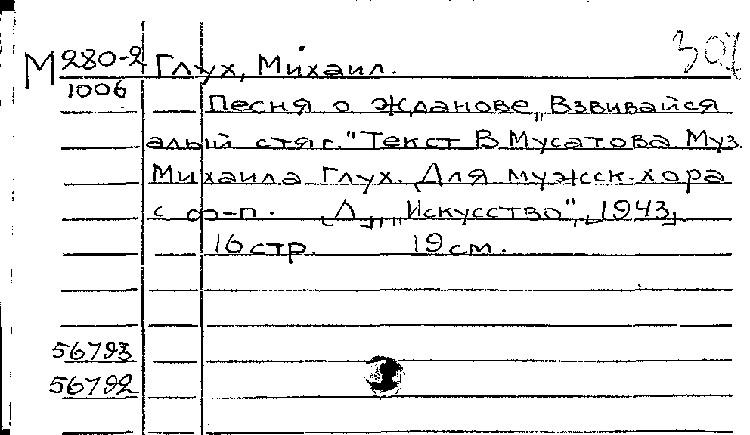 М 280-2 Глух, Михаил. 307
1006
Песня о Жданове „Взвивайся
алый стяг." Текст В. Мусатова Муз
Михаила Глух. Для мужск. хора
с ф-п. [Л.], „Искусство", [1943]
16 стр. 19 см.
56793
56792